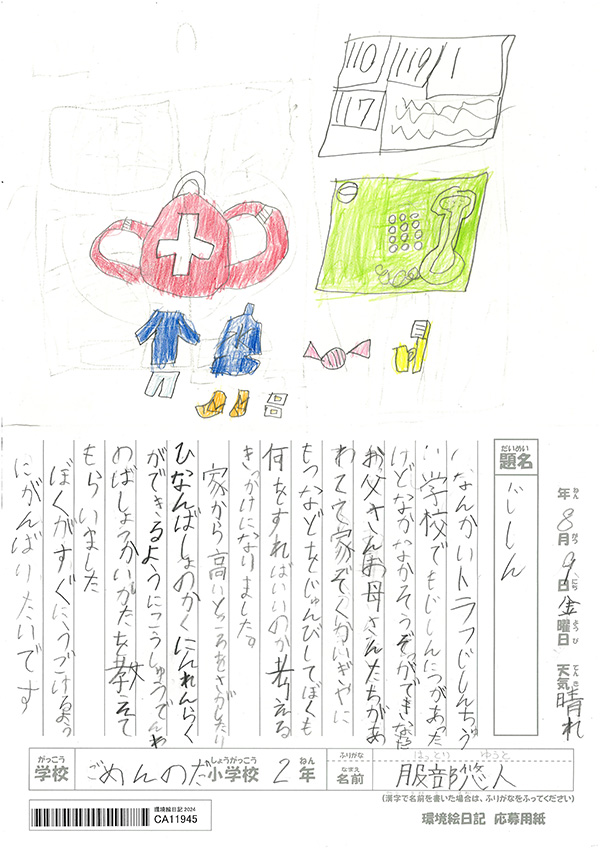 110
119
1
117
年 8月 9日 金曜日 天気 晴れ
ねん がつ にち ようび てんき
だいめい
題名
じしん
なんかいトラフじしんちゅう
い学校でもじしんにつがあった
けどなかなかそうぞうができな
お父さんお母さんたちがあ
わてて家ぞくかいぎやに
もつなどをじゅんびして、ぼくも
何をすればいいのか考える
きっかけになりました。
家から高いところをさがしたり
ひなんばしょのかくにんれんらく
ができるようにこうしゅうでんわ
のばしょつかいかたを教えて
もらいました
ぼくがすぐにうごけるよう
にがんばりたいです
がっこう しょうがっこう ねん
学校 ごめんのだ小学校 2年
ふりがな はっとり ゆうと
なまえ
名前 服部悠人
(漢字で名前を書いた場合は、ふりがなをふってください)
環境絵日記 2024
CA11945
環境絵日記 応募用紙